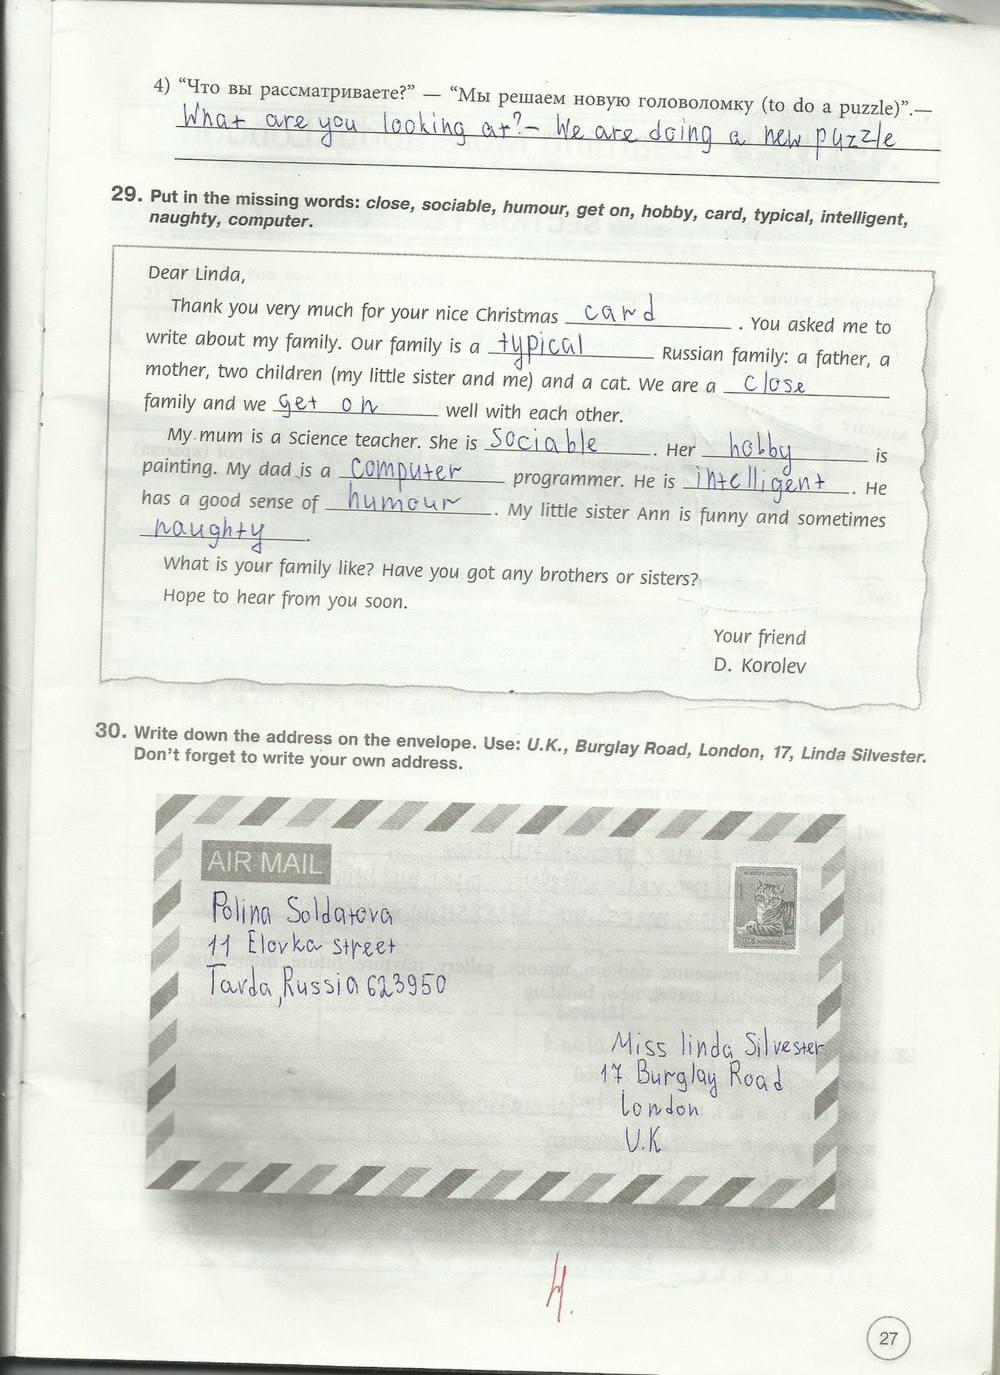 4) “Что вы рассматриваете?” — “Мы решаем новую головоломку (to do a puzzle)”.—
What are you looking at?- We are doing a new puzzle
29. Put in the missing words: close, sociable, humour, get on, hobby, card, typical, intelligent,
naughty, computer.
Dear Linda,
Thank you very much for your nice Christmas card. You asked me to
write about my family. Our family is a typical Russian family: a father, a
mother, two children (my little sister and me) and a cat. We are a close
family and we get on well with each other.
My mum is a Science teacher. She is sociable. Her hobby is
painting. My dad is a computer programmer. He is intelligent. He
has a good sense of humour. My little sister Ann is funny and sometimes
naughty.
What is your family like? Have you got any brothers or sisters?
Hope to hear from you soon.
Your friend
D. Korolev
30. Write down the address on the envelope. Use: U.K., Burglay Road, London, 17, Linda Silvester.
Don’t forget to write your own address.
AIR MAIL
Polina Soldatova
11 Elovka street
Tavda, Russia 623950
Miss linda Silvester
17 Burglay Road
London
U.K
4.
27